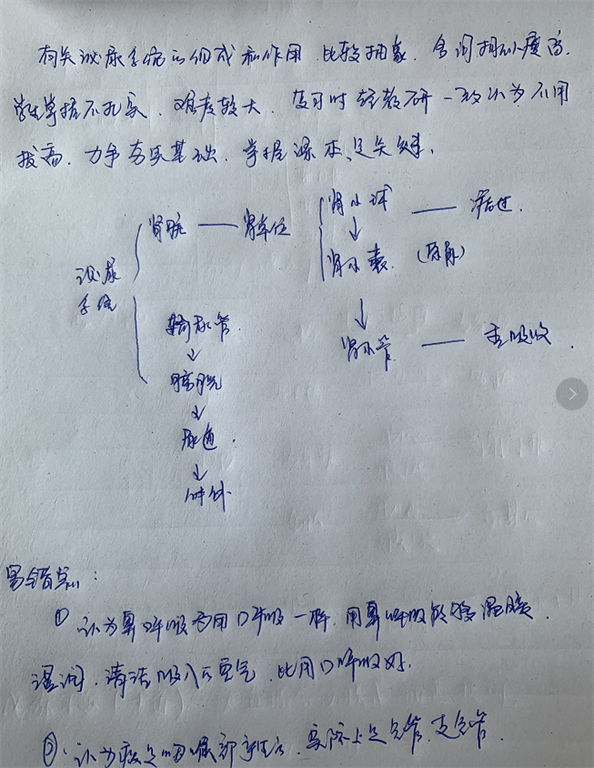 有关泌尿系统的组成和作用，比较抽象，名词相似度高，
学生掌握不扎实，难度较大，复习时经教研一致认为不用
拔高，力争夯实基础，掌握课本是关键。
肾脏——肾单位 肾小球——滤过
泌尿系统 肾小囊（原尿）
输尿管 肾小管——重吸收
膀胱
尿道
体外
易错点：
① 认为鼻呼吸与用口呼吸一样，用鼻呼吸能够温暖、
湿润、清洁吸入的空气，比用口呼吸好。
② 认为痰是咽喉部产生，实际上是气管、支气管